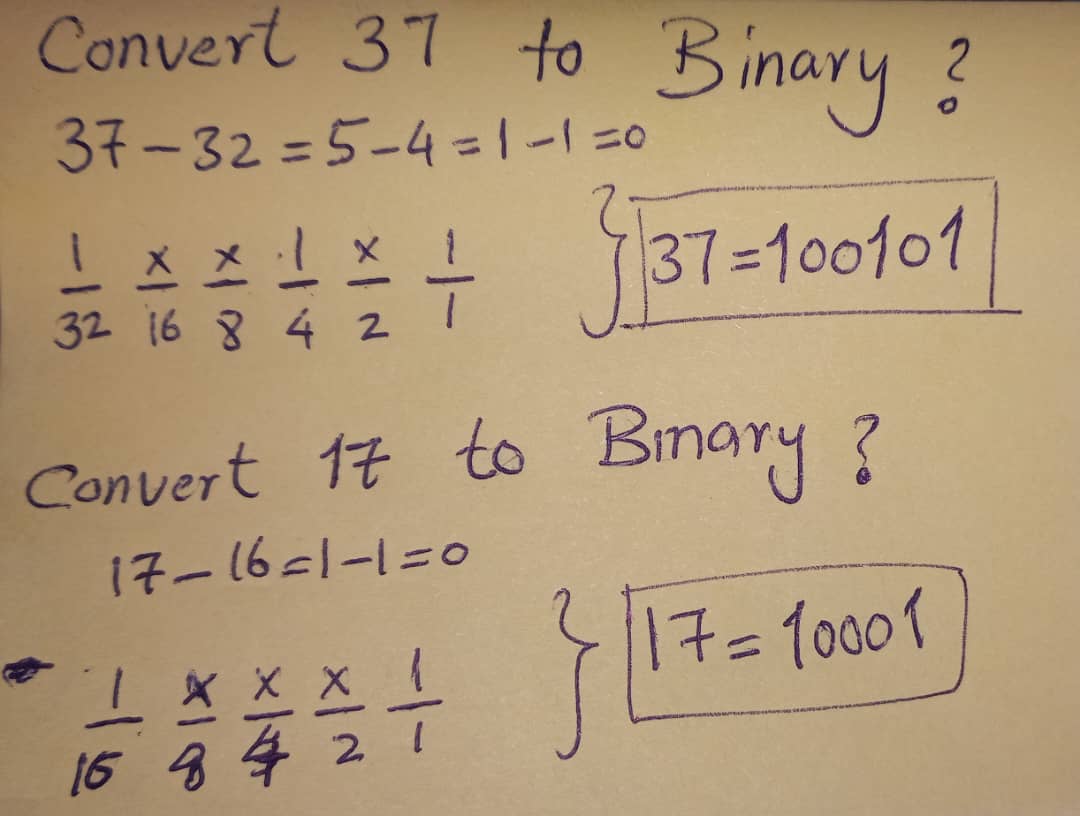 Convert 37 to Binary ?
37-32=5-4=1-1=0
1 x x 1 x 1
32 16 8 4 2 1
37=100101
Convert 17 to Binary ?
17-16=1-1=0
1 x x x 1
16 8 4 2 1
17=10001